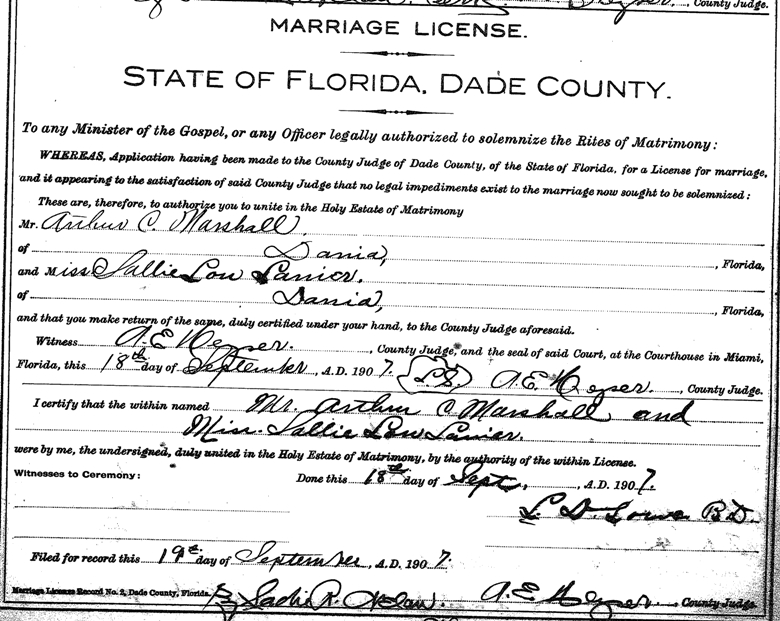 County Judge.
MARRIAGE LICENSE.
STATE OF FLORIDA, DADE COUNTY.
To any Minister of the Gospel, or any Officer legally authorized to solemnize the Rites of Matrimony:
WHEREAS, Application having been made to the County Judge of Dade County, of the State of Florida, for a License for marriage,
and it appearing to the satisfaction of said County Judge that no legal impediments exist to the marriage now sought to be solemnized:
These are, therefore, to authorize you to unite in the Holy Estate of Matrimony
Mr. Arthur C. Marshall,
of Dania, , Florida,
and Miss Sallie Lou Lanier.
of Dania, , Florida,
and that you make return of the same, duly certified under your hand, to the County Judge aforesaid.
Witness A. E. Heyser. , County Judge, and the seal of said Court, at the Courthouse in Miami,
Florida, this 18th day of September, A.D. 1907. (L.S.) A. E. Heyser. , County Judge.
I certify that the within named Mr. Arthur C. Marshall and
Miss. Sallie Lou Lanier.
were by me, the undersigned, duly united in the Holy Estate of Matrimony, by the authority of the within License.
Witnesses to Ceremony: Done this 18th day of Sept., A.D. 1907.
L. D. Lowe B.D.
Filed for record this 19th day of September, A.D. 1907.
Marriage License Record No. 2, Dade County, Florida. By Sadie R. A. E. Heyser , County Judge.